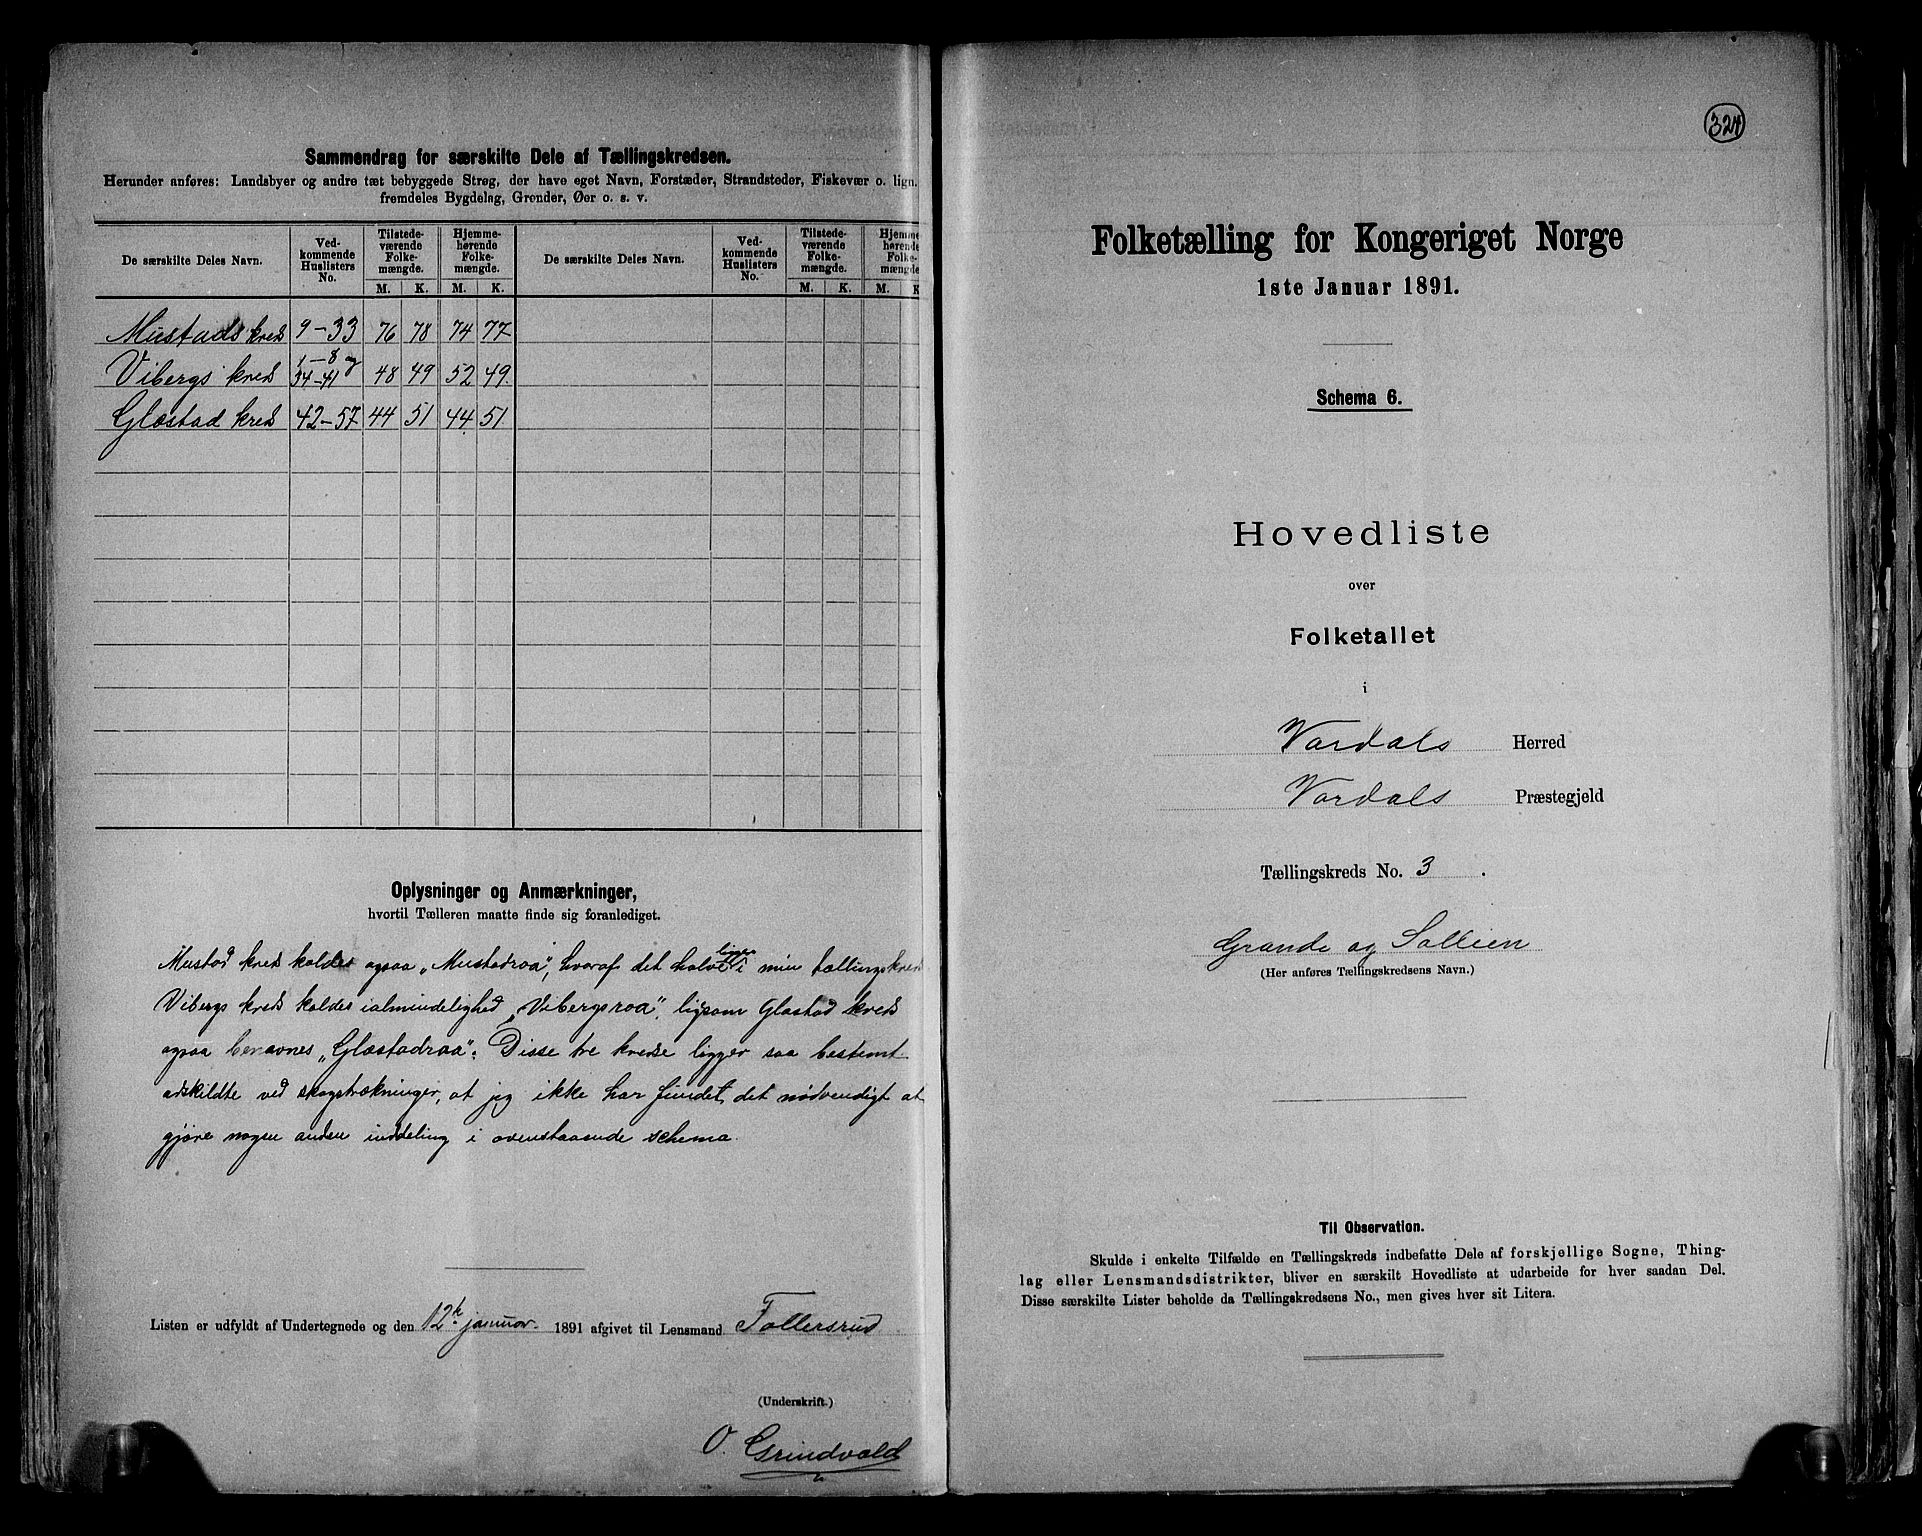 Sammendrag for særskilte Dele af Tællingskredsen.
Herunder anføres: Landsbyer og andre tæt bebyggede Strøg, der have eget Navn, Forstæder, Strandsteder, Fiskevær o. lign.
fremdeles Bygdelag, Grender, Øer o. s. v.
De særskilte Deles Navn. Ved-kommende Huslisters No. Tilstede-værende Folke-mængde. Hjemme-hørende Folke-mængde. De særskilte Deles Navn. Ved-kommende Huslisters No. Tilstede-værende Folke-mængde. Hjemme-hørende Folke-mængde
M. K. M. K. M. K. M. K
Mustads kreds 9-33 76 78 74 77
Vibergs kreds 1-8 og 34-41 48 49 52 49
Glæstad kreds 42-57 44 51 44 51
Oplysninger og Anmærkninger,
hvortil Tælleren maatte finde sig foranlediget.
Mustad kreds kaldes ogsaa „Mustadroa", hvoraf det halve ligger i min tællingskreds
Vibergs kreds kaldes i almindelighed „Vibergsroa", ligsom Glæstad kreds
ogsaa benævnes „Glæstadroa". Disse tre kredse ligger saa bestemt
adskildte ved skogstrækninger, at jeg ikke har fundet det nødvendigt at
gjøre nogen anden inddeling i ovenstaaende schema.
Listen er udfyldt af Undertegnede og den 12te januar 1891 afgivet til Lensmand Fallersrud
(Underskrift.)
O. Grindvold
324
Folketælling for Kongeriget Norge
1ste Januar 1891.
Schema 6.
Hovedliste
over
Folketallet
i
Vardals Herred
Vardals Præstegjeld
Tællingskreds No. 3.
Grande og Sollien
(Her anføres Tællingskredsens Navn.)
Til Observation.
Skulde i enkelte Tilfælde en Tællingskreds indbefatte Dele af forskjellige Sogne, Thing-
lag eller Lensmandsdistrikter, bliver en særskilt Hovedliste at udarbeide for hver saadan Del.
Disse særskilte Lister beholde da Tællingskredsens No., men gives hver sit Litera.